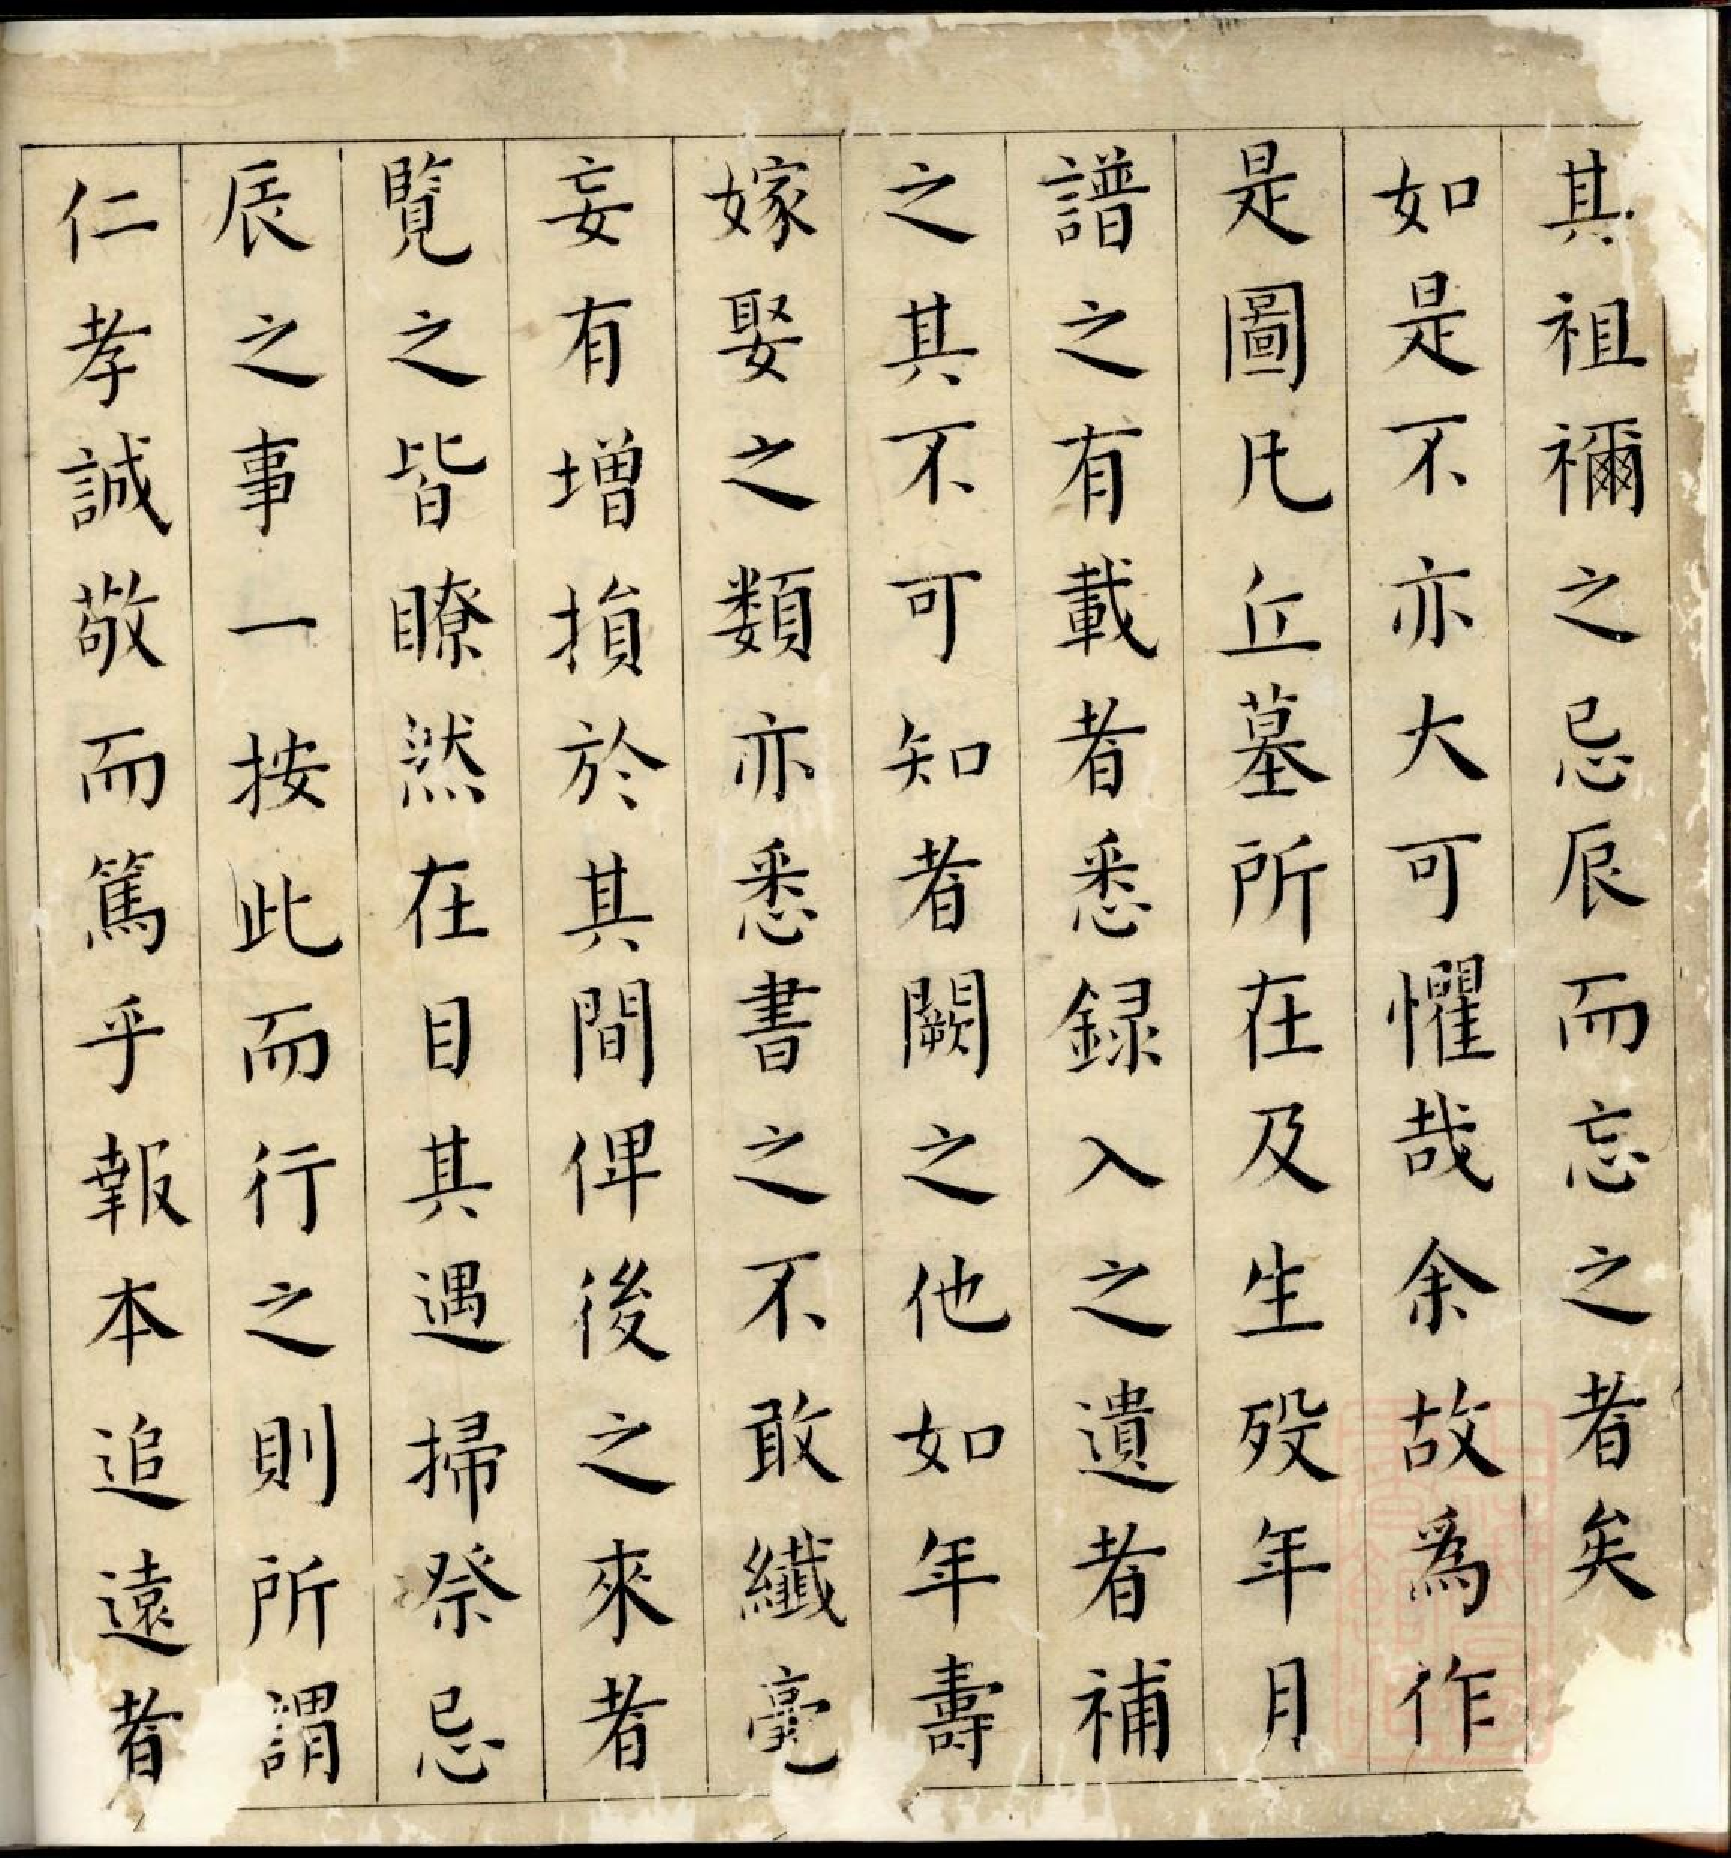 其祖禰之忌辰而忘之者矣
如是不亦大可懼哉余故為作
是圖凡丘墓所在及生歿年月
譜之有載者悉録入之遺者補
之其不可知者闕之他如年壽
嫁娶之類亦悉書之不敢纖毫
妄有增損於其間俾後之來者
覽之皆瞭然在目其遇掃祭忌
辰之事一按此而行之則所謂
仁孝誠敬而篤乎報本追遠者